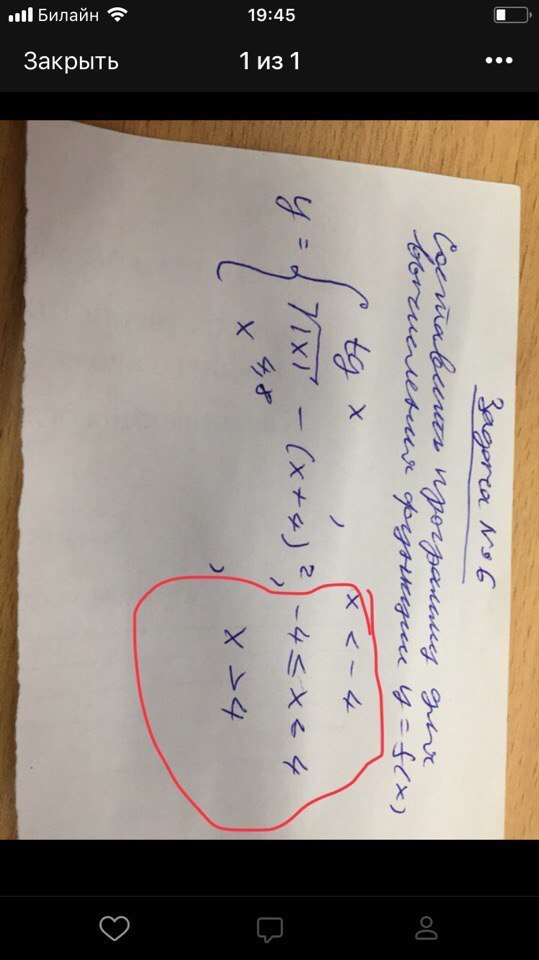 Билайн
19:45
Закрыть
1 из 1
Задача №6
Составить программу для
вычисления функции y = f(x)
y = { tg x , x < -4
√|x| - (x+4)², -4 ≤ x < 4
x⁴·⁸ , x > 4